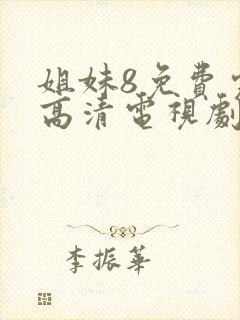 姐妹8免費
高清電視劇
李振華